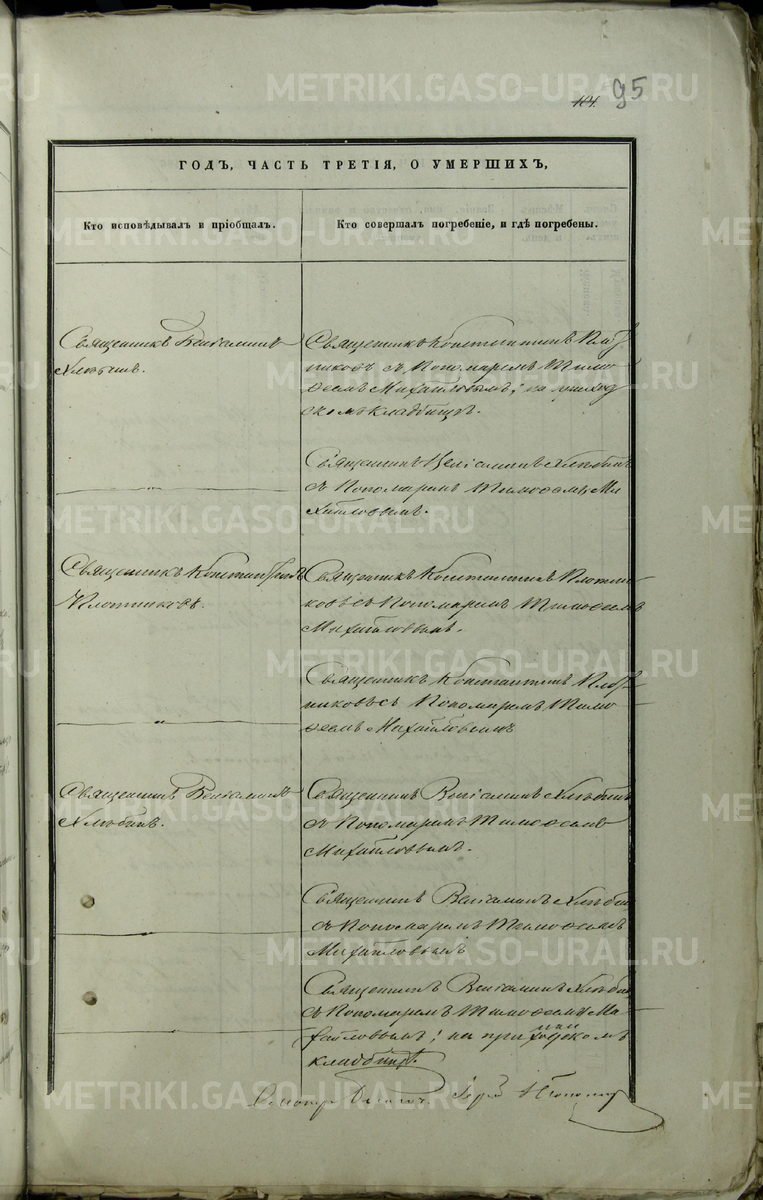 METRIKI.GASO-URAL.RU
104. 95
ГОДЪ, ЧАСТЬ ТРЕТІЯ, О УМЕРШИХЪ,
Кто исповѣдывалъ и пріобщалъ.
Кто совершалъ погребеніе, и гдѣ погребены.
Священникъ Веніаминъ
Хлѣбинъ.
Священникъ Константинъ Плот
никовъ съ Пономаремъ Тимо
ѳеемъ Михайловымъ; на приход
скомъ кладбищѣ.
Священникъ Веніаминъ Хлѣбинъ
съ Пономаремъ Тимоѳеемъ Ми
хайловымъ.
Священникъ Константинъ
Плотниковъ.
Священникъ Константинъ Плотни
ковъ съ Пономаремъ Тимоѳеемъ
Михайловымъ.
Священникъ Константинъ Плот
никовъ съ Пономаремъ Тимо
ѳеемъ Михайловымъ
Священникъ Веніаминъ
Хлѣбинъ.
Священникъ Веніаминъ Хлѣбинъ
съ Пономаремъ Тимоѳеемъ
Михайловымъ.
Священникъ Веніаминъ Хлѣбин
съ Пономаремъ Тимоѳеемъ
Михайловымъ
Священникъ Веніаминъ Хлѣбин
съ Пономаремъ Тимоѳеемъ Ми
хайловымъ; на приходскомъ
кладбищѣ.